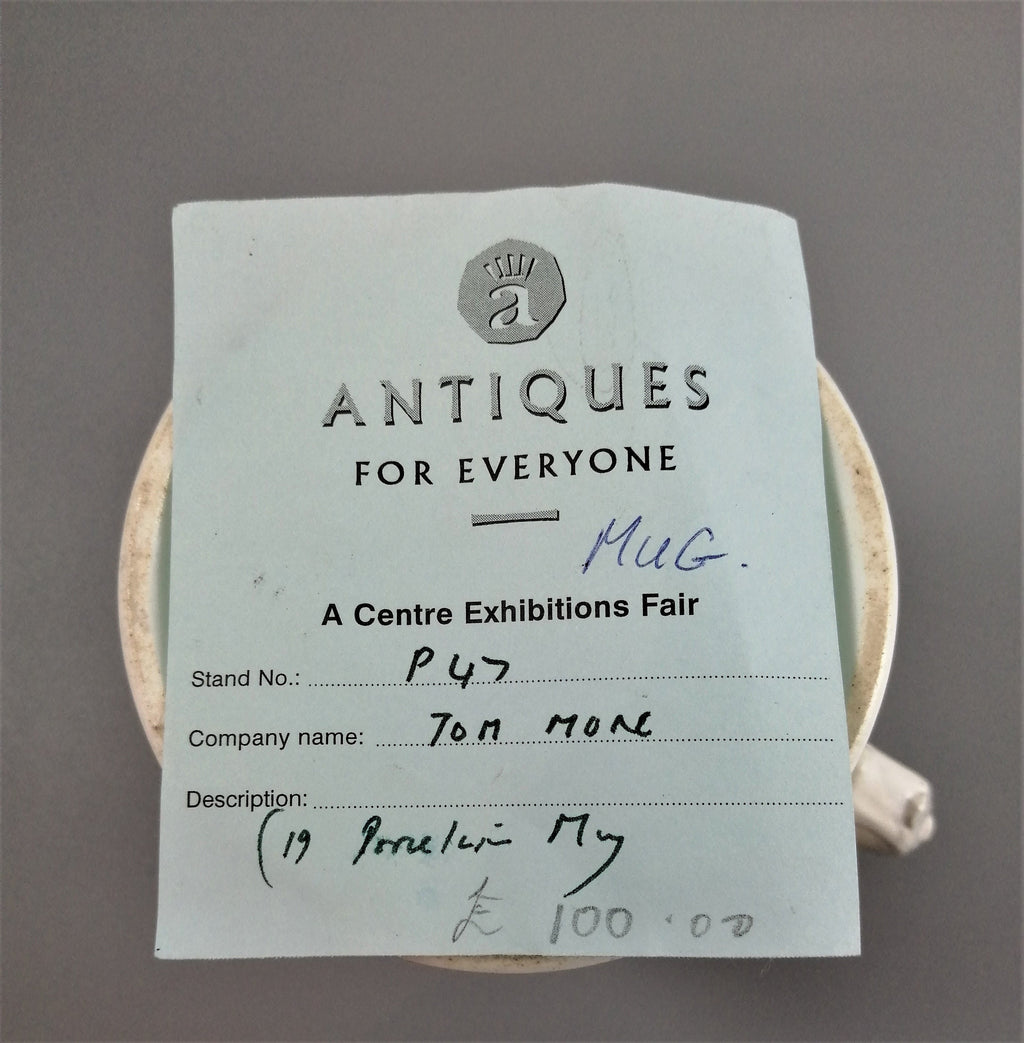 a
ANTIQUES
FOR EVERYONE
MUG.
A Centre Exhibitions Fair
Stand No.: P 47
Company name: TOM MORE
Description:
C 19 Porcelain Mug
£ 100.00